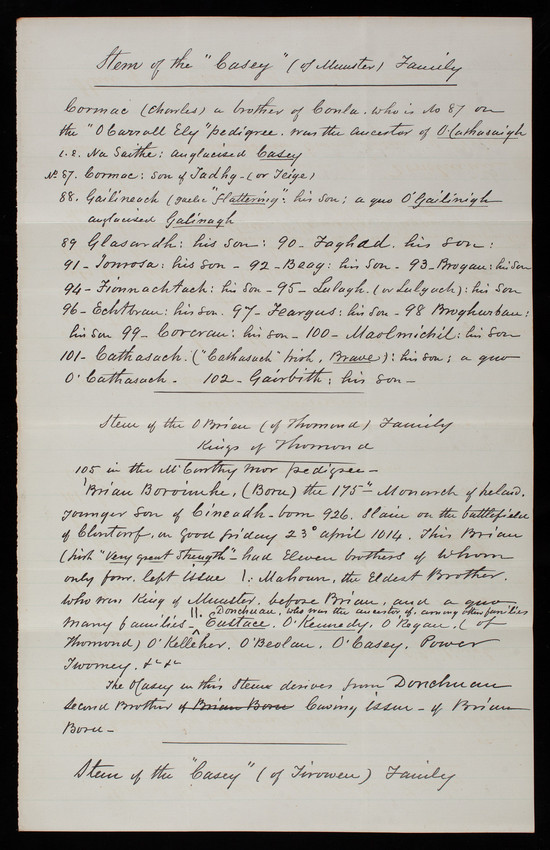 Stem of the "Casey" (of Munster) Family
Cormac (Charles) a brother of Conla. who is No 87 on
the "O Carroll Ely" pedigree. was the ancestor of O'Cathasaigh
i.e. Na Saithe: anglicised Casey
No 87. Cormac: Son of Tadhg - (or Teige)
88. Gailineach (gaelic "flattering": his Son; a quo O'Gailinigh
anglicised Galinagh
89 Glasardh: his Son: 90 - Faghad. his Son:
91 - Ionrosa: his Son - 92 - Beag: his Son - 93 - Brogan: his Son
94 - Fionnachtach: his Son - 95 - Lulagh. (or Lulgach): his Son
96 - Echtbran: his Son. 97 - Feargus: his Son - 98 Broghurban:
his Son 99 - Corcran: his Son - 100 - Maolmichil: his Son
101 - Cathasach. ("Cathasach" Irish, Brave): his Son; a quo
O'Cathasach - 102 - Gairbith: his Son -
Stem of the O'Brien (of Thomond) Family
Kings of Thomond
105 in the McCarthy Mor pedigree -
Brian Boroimhe, (Boru) the 175th Monarch of Ireland.
younger Son of Cineadh - born 926. Slain on the battlefield
of Clontarf. on good friday 23d april 1014. This Brian
(Irish "Very great Strength" - had Eleven brothers of whom
only four. left issue 1: Mahoun, the Eldest Brother.
who was King of Munster, before Brian, and a quo
II. Donchuan, who was the ancestor of, among other families
many families - Eustace. O'Kennedy. O'Regan. (of
Thomond) O'Kelleher. O'Beolan. O'Casey. Power
Twomey. &c &c
The OCasey in this Stem derives from Donchuan
Second Brother of Brian Boru leaving issue - of Brian
Boru -
Stem of the "Casey" (of Tirowen) Family